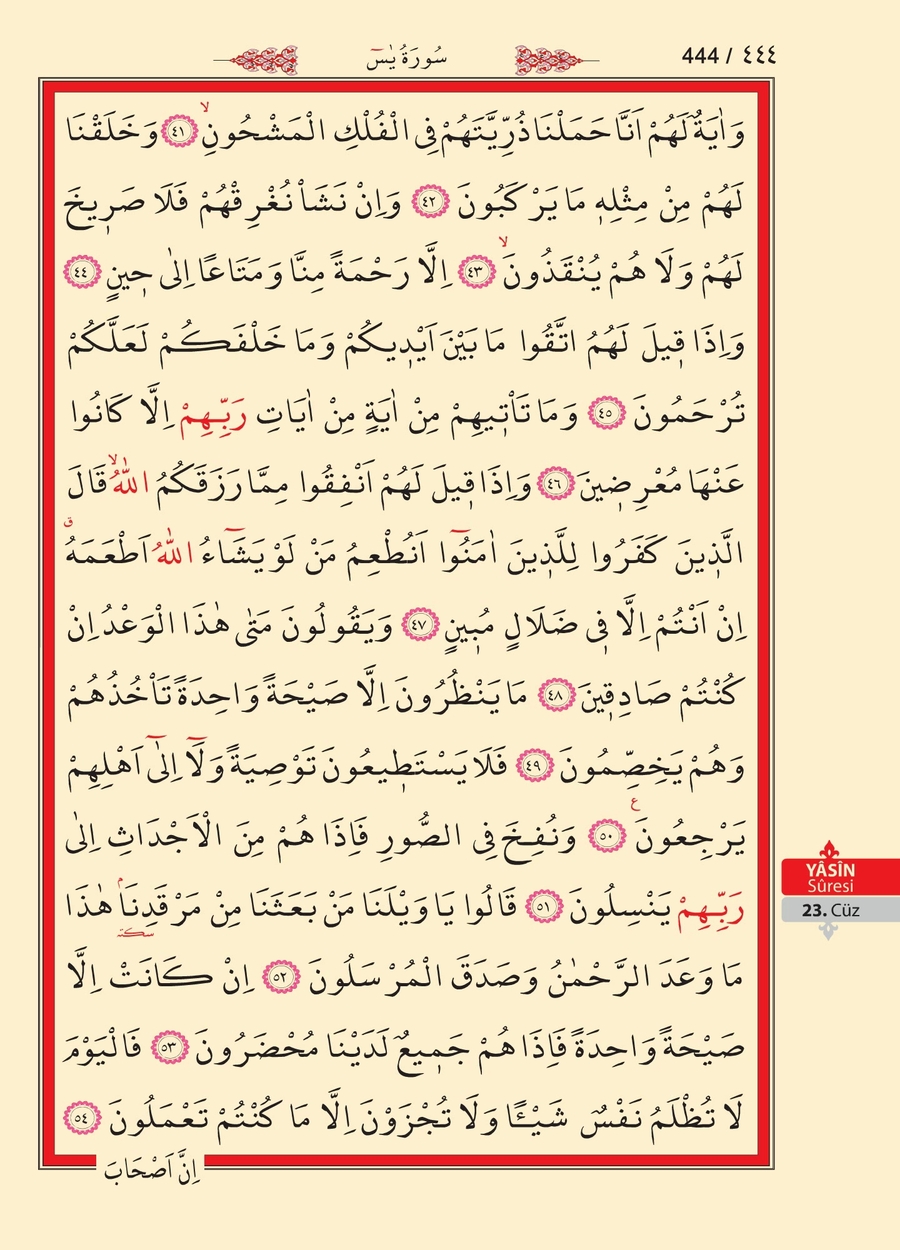 سُورَةُ يٰسٓ
444 / ٤٤٤
وَاٰيَةٌ لَهُمْ اَنَّا حَمَلْنَا ذُرِّيَّتَهُمْ فِي الْفُلْكِ الْمَشْحُونِۙ ﴿٤١﴾ وَخَلَقْنَا
لَهُمْ مِنْ مِثْلِه۪ مَا يَرْكَبُونَ ﴿٤٢﴾ وَاِنْ نَشَأْ نُغْرِقْهُمْ فَلَا صَر۪يخَ
لَهُمْ وَلَا هُمْ يُنْقَذُونَۙ ﴿٤٣﴾ اِلَّا رَحْمَةً مِنَّا وَمَتَاعًا اِلٰى ح۪ينٍ ﴿٤٤﴾
وَاِذَا ق۪يلَ لَهُمُ اتَّقُوا مَا بَيْنَ اَيْد۪يكُمْ وَمَا خَلْفَكُمْ لَعَلَّكُمْ
تُرْحَمُونَ ﴿٤٥﴾ وَمَا تَأْت۪يهِمْ مِنْ اٰيَةٍ مِنْ اٰيَاتِ رَبِّهِمْ اِلَّا كَانُوا
عَنْهَا مُعْرِض۪ينَ ﴿٤٦﴾ وَاِذَا ق۪يلَ لَهُمْ اَنْفِقُوا مِمَّا رَزَقَكُمُ اللّٰهُۙ قَالَ
الَّذ۪ينَ كَفَرُوا لِلَّذ۪ينَ اٰمَنُٓوا اَنُطْعِمُ مَنْ لَوْ يَشَٓاءُ اللّٰهُ اَطْعَمَهُۗ
اِنْ اَنْتُمْ اِلَّا ف۪ي ضَلَالٍ مُب۪ينٍ ﴿٤٧﴾ وَيَقُولُونَ مَتٰى هٰذَا الْوَعْدُ اِنْ
كُنْتُمْ صَادِق۪ينَ ﴿٤٨﴾ مَا يَنْظُرُونَ اِلَّا صَيْحَةً وَاحِدَةً تَأْخُذُهُمْ
وَهُمْ يَخِصِّمُونَ ﴿٤٩﴾ فَلَا يَسْتَط۪يعُونَ تَوْصِيَةً وَلَٓا اِلٰٓى اَهْلِهِمْ
يَرْجِعُونَ۟ ﴿٥٠﴾ وَنُفِخَ فِي الصُّورِ فَاِذَا هُمْ مِنَ الْاَجْدَاثِ اِلٰى
رَبِّهِمْ يَنْسِلُونَ ﴿٥١﴾ قَالُوا يَا وَيْلَنَا مَنْ بَعَثَنَا مِنْ مَرْقَدِنَاۢ هٰذَا
سكته
مَا وَعَدَ الرَّحْمٰنُ وَصَدَقَ الْمُرْسَلُونَ ﴿٥٢﴾ اِنْ كَانَتْ اِلَّا
صَيْحَةً وَاحِدَةً فَاِذَا هُمْ جَم۪يعٌ لَدَيْنَا مُحْضَرُونَ ﴿٥٣﴾ فَالْيَوْمَ
لَا تُظْلَمُ نَفْسٌ شَيْـًٔا وَلَا تُجْزَوْنَ اِلَّا مَا كُنْتُمْ تَعْمَلُونَ ﴿٥٤﴾
اِنَّ اَصْحَابَ
YÂSÎN
Sûresi
23. Cüz